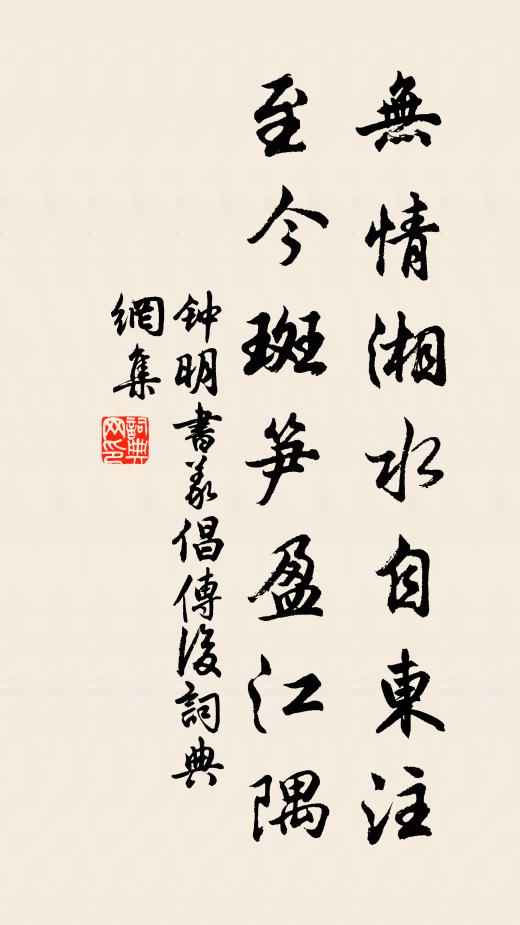 無情湘水自東注
至今斑笋盈江隅
钟明書義倡傳後詞典
網集
詞典
网印